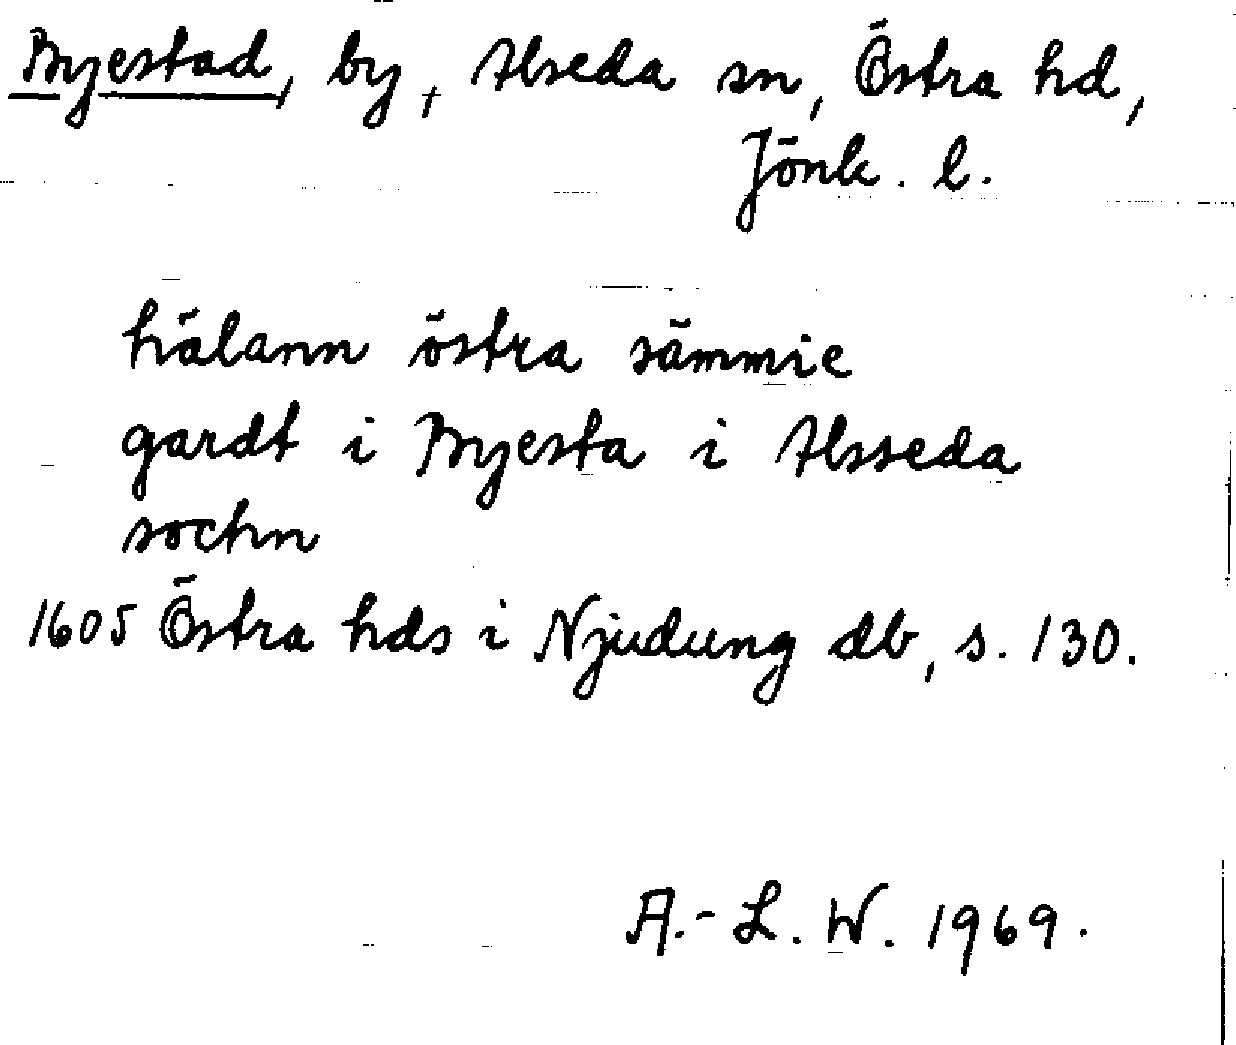 Byestad, by, Alseda sn, Östra hd,
Jönk. l.
hälann östra sämmie
gardt i Byesta i Alsseda
sochn
1605 Östra hds i Njudung db, s. 130.
A.-L. W. 1969.